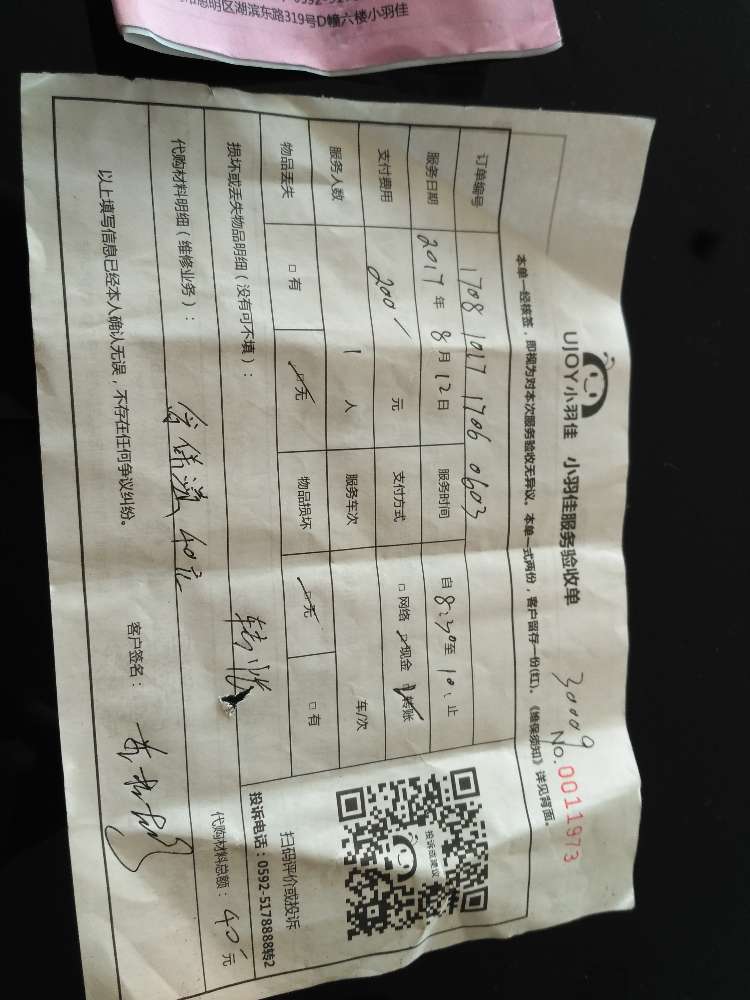 思明区湖滨东路319号D幢六楼小羽佳
UJOY小羽佳 小羽佳服务验收单
30009
No.0011973
本单一经核签，即视为对本次服务验收无异议。本单一式两份，客户留存一份(红)，《维保须知》详见背面。
订单编号 1708 1017 1706 0603
服务日期 2017年8月12日 服务时间 自8:30至10:止
支付费用 200元 支付方式 □网络 □现金 □转账
服务人数 1人 服务车次 车/次
物品丢失 □有 □无 物品损坏 □无 □有
投诉或建议
扫码评价或投诉
投诉电话：0592-5178888转2
损坏或丢失物品明细（没有可不填）：
转账
代购材料明细（维修业务）：
40元
代购材料总额：40元
以上填写信息已经本人确认无误，不存在任何争议纠纷。
客户签名：